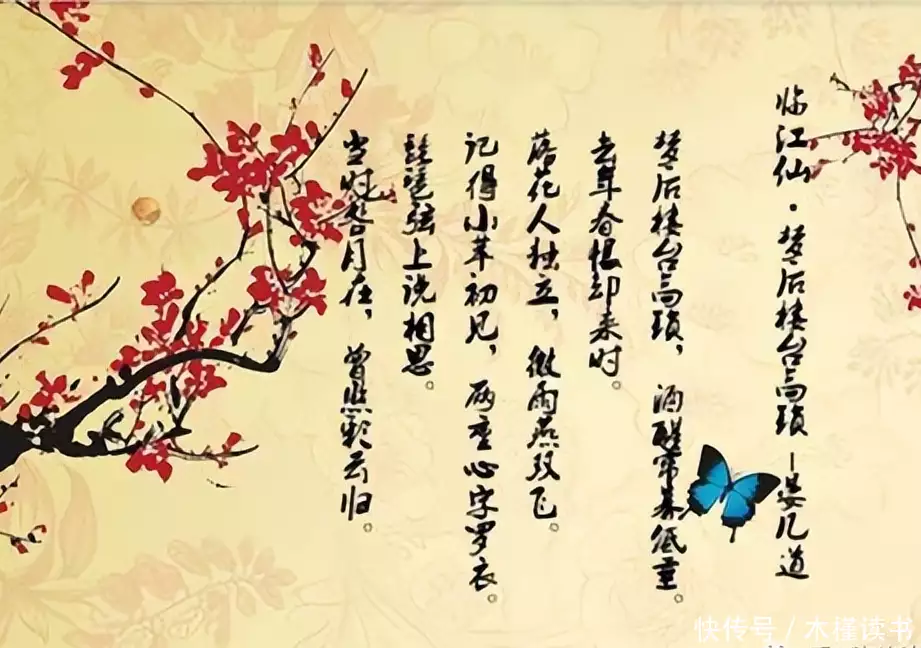 临江仙·梦后楼台高锁—晏几道
梦后楼台高锁，酒醒帘幕低垂。
去年春恨却来时。
落花人独立，微雨燕双飞。
记得小苹初见，两重心字罗衣。
琵琶弦上说相思。
当时明月在，曾照彩云归。
快传号/木槿读书